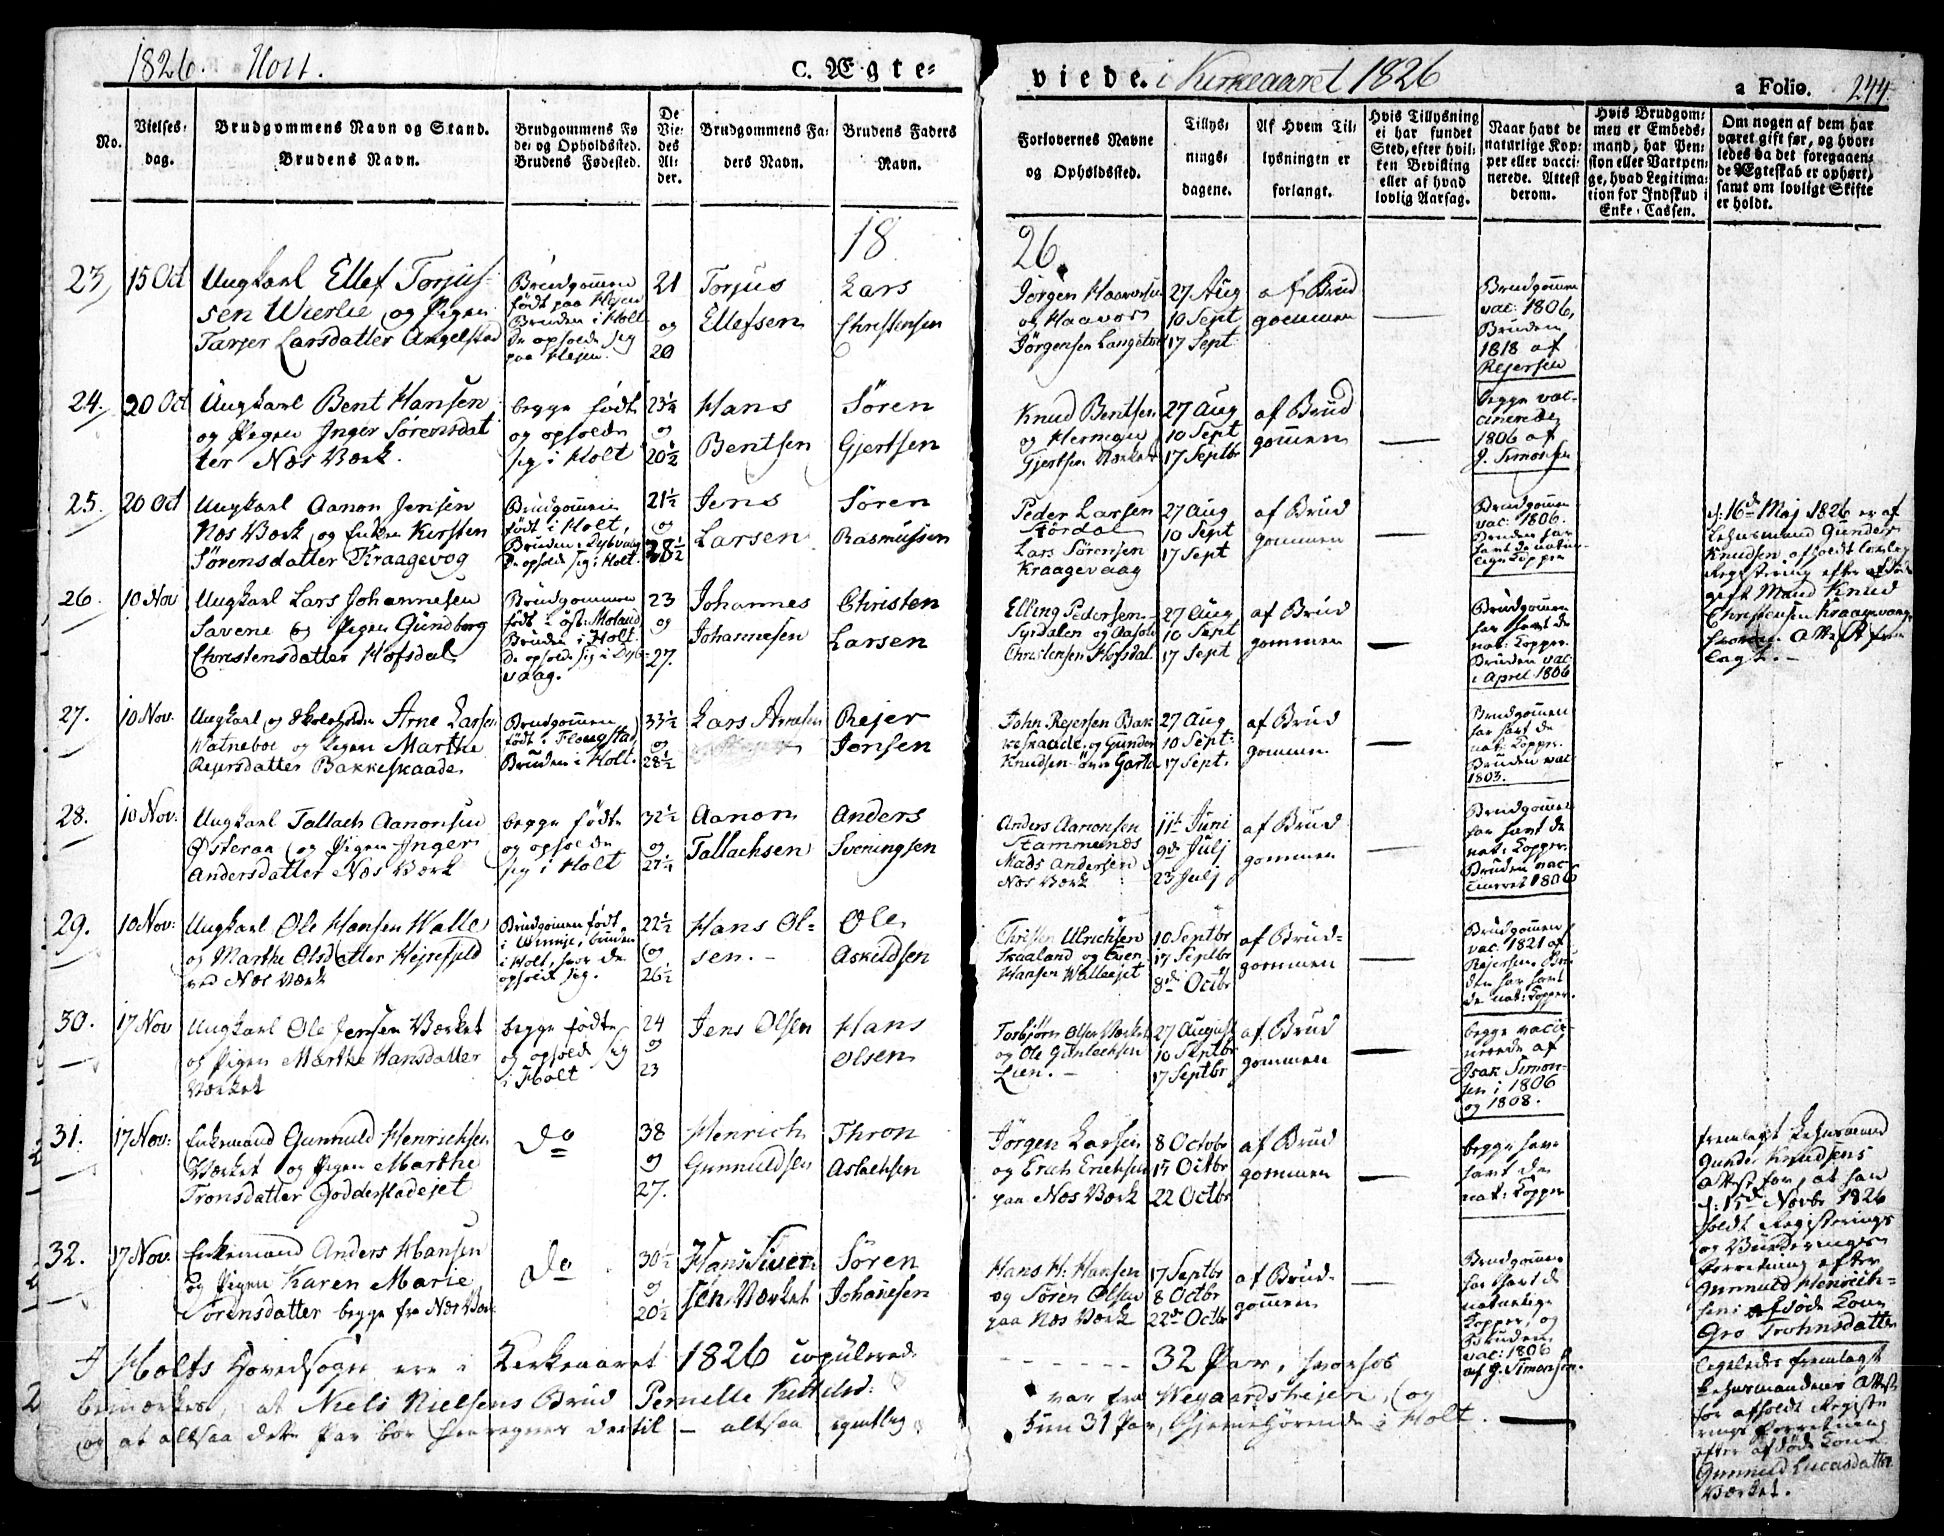 1826. Holt.
C. Ægte-
viede. i Kirkeaaret 1826
a Folio. 244.
No.
Vielses-
dag.
Brudgommens Navn og Stand.
Brudens Navn.
Brudgommens Fø
de- og Opholdssted.
Brudens Fødested.
De
Vie-
des
Al-
der.
Brudgommens Fa-
ders Navn.
Brudens Faders
Navn.
Forlovernes Navne
og Opholdssted.
Tillys-
nings-
dagene.
Af Hvem Til-
lysningen er
forlangt.
Hvis Tillysning
ei har fundet
Sted, efter hvil-
ken Bevilling
eller af hvad
lovlig Aarsag.
Naar havt de
naturlige Kop-
per eller vacci-
nerede. Attest
derom.
Hvis Brudgom-
men er Embeds-
mand, har Pen-
sion eller Vartpen-
ge, hvad Legitima-
tion for Indskud i
Enke-Cassen.
Om nogen af dem har
været gift før, og hvor-
ledes da det foregaaen-
de Ægteskab er ophørt,
samt om lovligt Skifte
er holdt.
18
26.
23, 15 Oct
Ungkarl Ellef Torjus-
sen Wierlie og Pigen
Tarjer Larsdatter Angelstad
Brudgommen
født paa Hejen
Bruden i Holt
De opholde sig
paa Hejen.
21
og
20
Torjus
Ellefsen
Lars
Christensen
Jørgen Haavorsen
og Haavor
Jørgensen
27 Aug
10 Sept
17 Sept
af Brud
gommen
Brudgommen
vac: 1806,
Bruden
1818 af
Rejersen
24. 20 Oct
Ungkarl Bent Hansen
og Pigen Inger Sørensdat
ter Næs Værk.
begge født
og opholde
sig i Holt
23¼
og
20½
Hans
Bentsen
Søren
Gjertsen
Knud Bentsen
og
Gjertsen Værket
27 Aug
10 Sept
17 Septbr
af Brud
gommen
begge vac-
cinerede
1806 af
J. Simonsen
25. 20 Oct
Ungkarl Aanon Jensen
Næs Værk og Enken Kirsten
Sørensdatter Kraagevog
Brudgommen
født i Holt,
Bruden i Dybvaag
De opholde sig i Holt.
21½
og
28½
Jens
Larsen
Søren
Rasmussen
Peder Larsen
Størdal
Lars Sørensen
Kraagevaag
27 Aug
10 Sept
17 Sept
af Brud
gommen
Brudgommen
vac: 1806.
Bruden har
havt de natur-
lige Kopper
d: 16de Maj 1826 er af
Lehnsmand Gunder
Knudsen afholdt lovlig
Registering efter afdøde
gift Mand Knud
Christensen Kraagevaag
hvorom Attest frem
lagt. -
26. 10 Nov
Ungkarl Lars Johannesen
Savene og Pigen Gundborg
Christensdatter Hofsdal
Brudgommen
født i øst: Moland
Bruden i Holt.
De opholde sig i Dyb-
vaag.
23
og
27.
Johannes
Johannesen
Christen
Larsen
Elling Pedersen
Syrdalen og Aasold
Christensen Hofsdal.
27 Aug
10 Sept
17 Sept
af Brud
gommen
Brudgommen
har havt de
nat: Kopper.
Bruden vac:
i April 1806
27. 10 Nov.
Ungkarl og Skoleholder Arne Larsen
Watneboe og Pigen Marthe
Rejersdatter Bakkeskaade
Brudgommen
født i Flougstad
Bruden i Holt.
33½
og
28½
Lars Arnesen
Rejer
Jonsen
John Rejersen Bak
keskaade og Gunder
Knudsen øvre Garta
27 Aug
10 Sept.
17 Sept.
af Brud
gommen
Brudgommen
har havt de
nat: Kopper.
Bruden vac:
1803.
28. 10 Nov.
Ungkarl Tallach Aanonsen
Østeraa og Pigen Inger
Andersdatter Næs Værk
begge født
og opholde
sig i Holt
32½
og
27¼
Aanon
Tallachsen
Anders
Sveningsen
Anders Aanonsen
Stammenæs
Mads Andersen
Næs Værk
11te Juni
9de Julj
23 Julj
af Brud
gommen
Brudgommen
har havt de
nat: Kopper.
Bruden vac-
cineret 1806
29. 10 Nov:
Ungkarl Ole Hansen Walle
og Marthe Olsdatter Hejrefjeld
ved Næs Værk
Brudgommen født
i Winnje, bruden
i Holt, hvor de
opholde sig.
22½
og
26½
Hans Ol-
sen. -
Ole
Askildsen
Christen Ulrichsen
Skaaland og Even
Hansen Walleejet
10 Septbr
17 Septbr
8de Octbr
af Brud-
gommen
Brudgommen
vac: 1821 af
Rejersen. Bru-
den har havt
de nat: Kopper.
30. 17 Nov
Ungkarl Ole Jensen Værket
og Pigen Marthe Hansdatter
Værket
begge fødte
og opholde sig
i Holt
24
og
23
Jens Olsen
Hans
Olsen
Torbjørn Olsen Værket
og Ole Gunlachsen
Lien. -
27 August
10 Septbr
17 Septbr
af Brud
gommen
begge vacci-
nerede af
Isak Simon-
sen i 1806
og 1808.
31. 17 Nov:
Enkemand Gunnuld Henrichsen
Værket og Pigen Marthe
Tronsdatter Godderstadejet
do
38
og
27.
Henrich
Gunnuldsen
Thron
Aslachsen
Jørgen Larsen
og Erich Erichsen
paa Næs Værk
8 Octobr
15 Octbr
22 Octbr
af Brud
gommen
begge have
havt de
nat: Kopper
fremlagt Lehnsmand
Gunder Knudsens
Attest for, at han
d: 15de Novbr 1826
holdt Registerings
og Vurderings
forretning efter
Gunnuld Henrich-
sens afdøde Kone
Gro Trohnsdatter
32. 17 Nov.
Enkemand Anders Hansen
og Pigen Karen Marie
Sørensdatter begge fra Næs Værk
do
30½
og
20½
Hans Siver
sen Værket
Søren
Johanesen
Hans H. Hansen
og Søren Olsen
paa Næs Værk
17 Septbr
8 Octbr
22de Octbr
af Brud-
gommen
Brudgommen
har havt de
naturlige
Kopper, og
Bruden
vac: 1806
af J. Simonsen.
ligeledes fremlagt
Lehnsmandens Attest
for afholdt Registe
rings Forretning
efter afdøde Kone
Gunnuld Lucasdatter
Værket.
I Holts Hovedsogn ere i Kirkeaaret 1826 copulerede
32 Par, hvorhos
bemærkes, at Niels Nielsens Brud Pernelle Kittelsd:
var fra Wegaardshejen, og
og at altsaa dette Par bør henregnes dertil - altsaa egentlig
kun 31 Par, hjemmehørende i Holt.